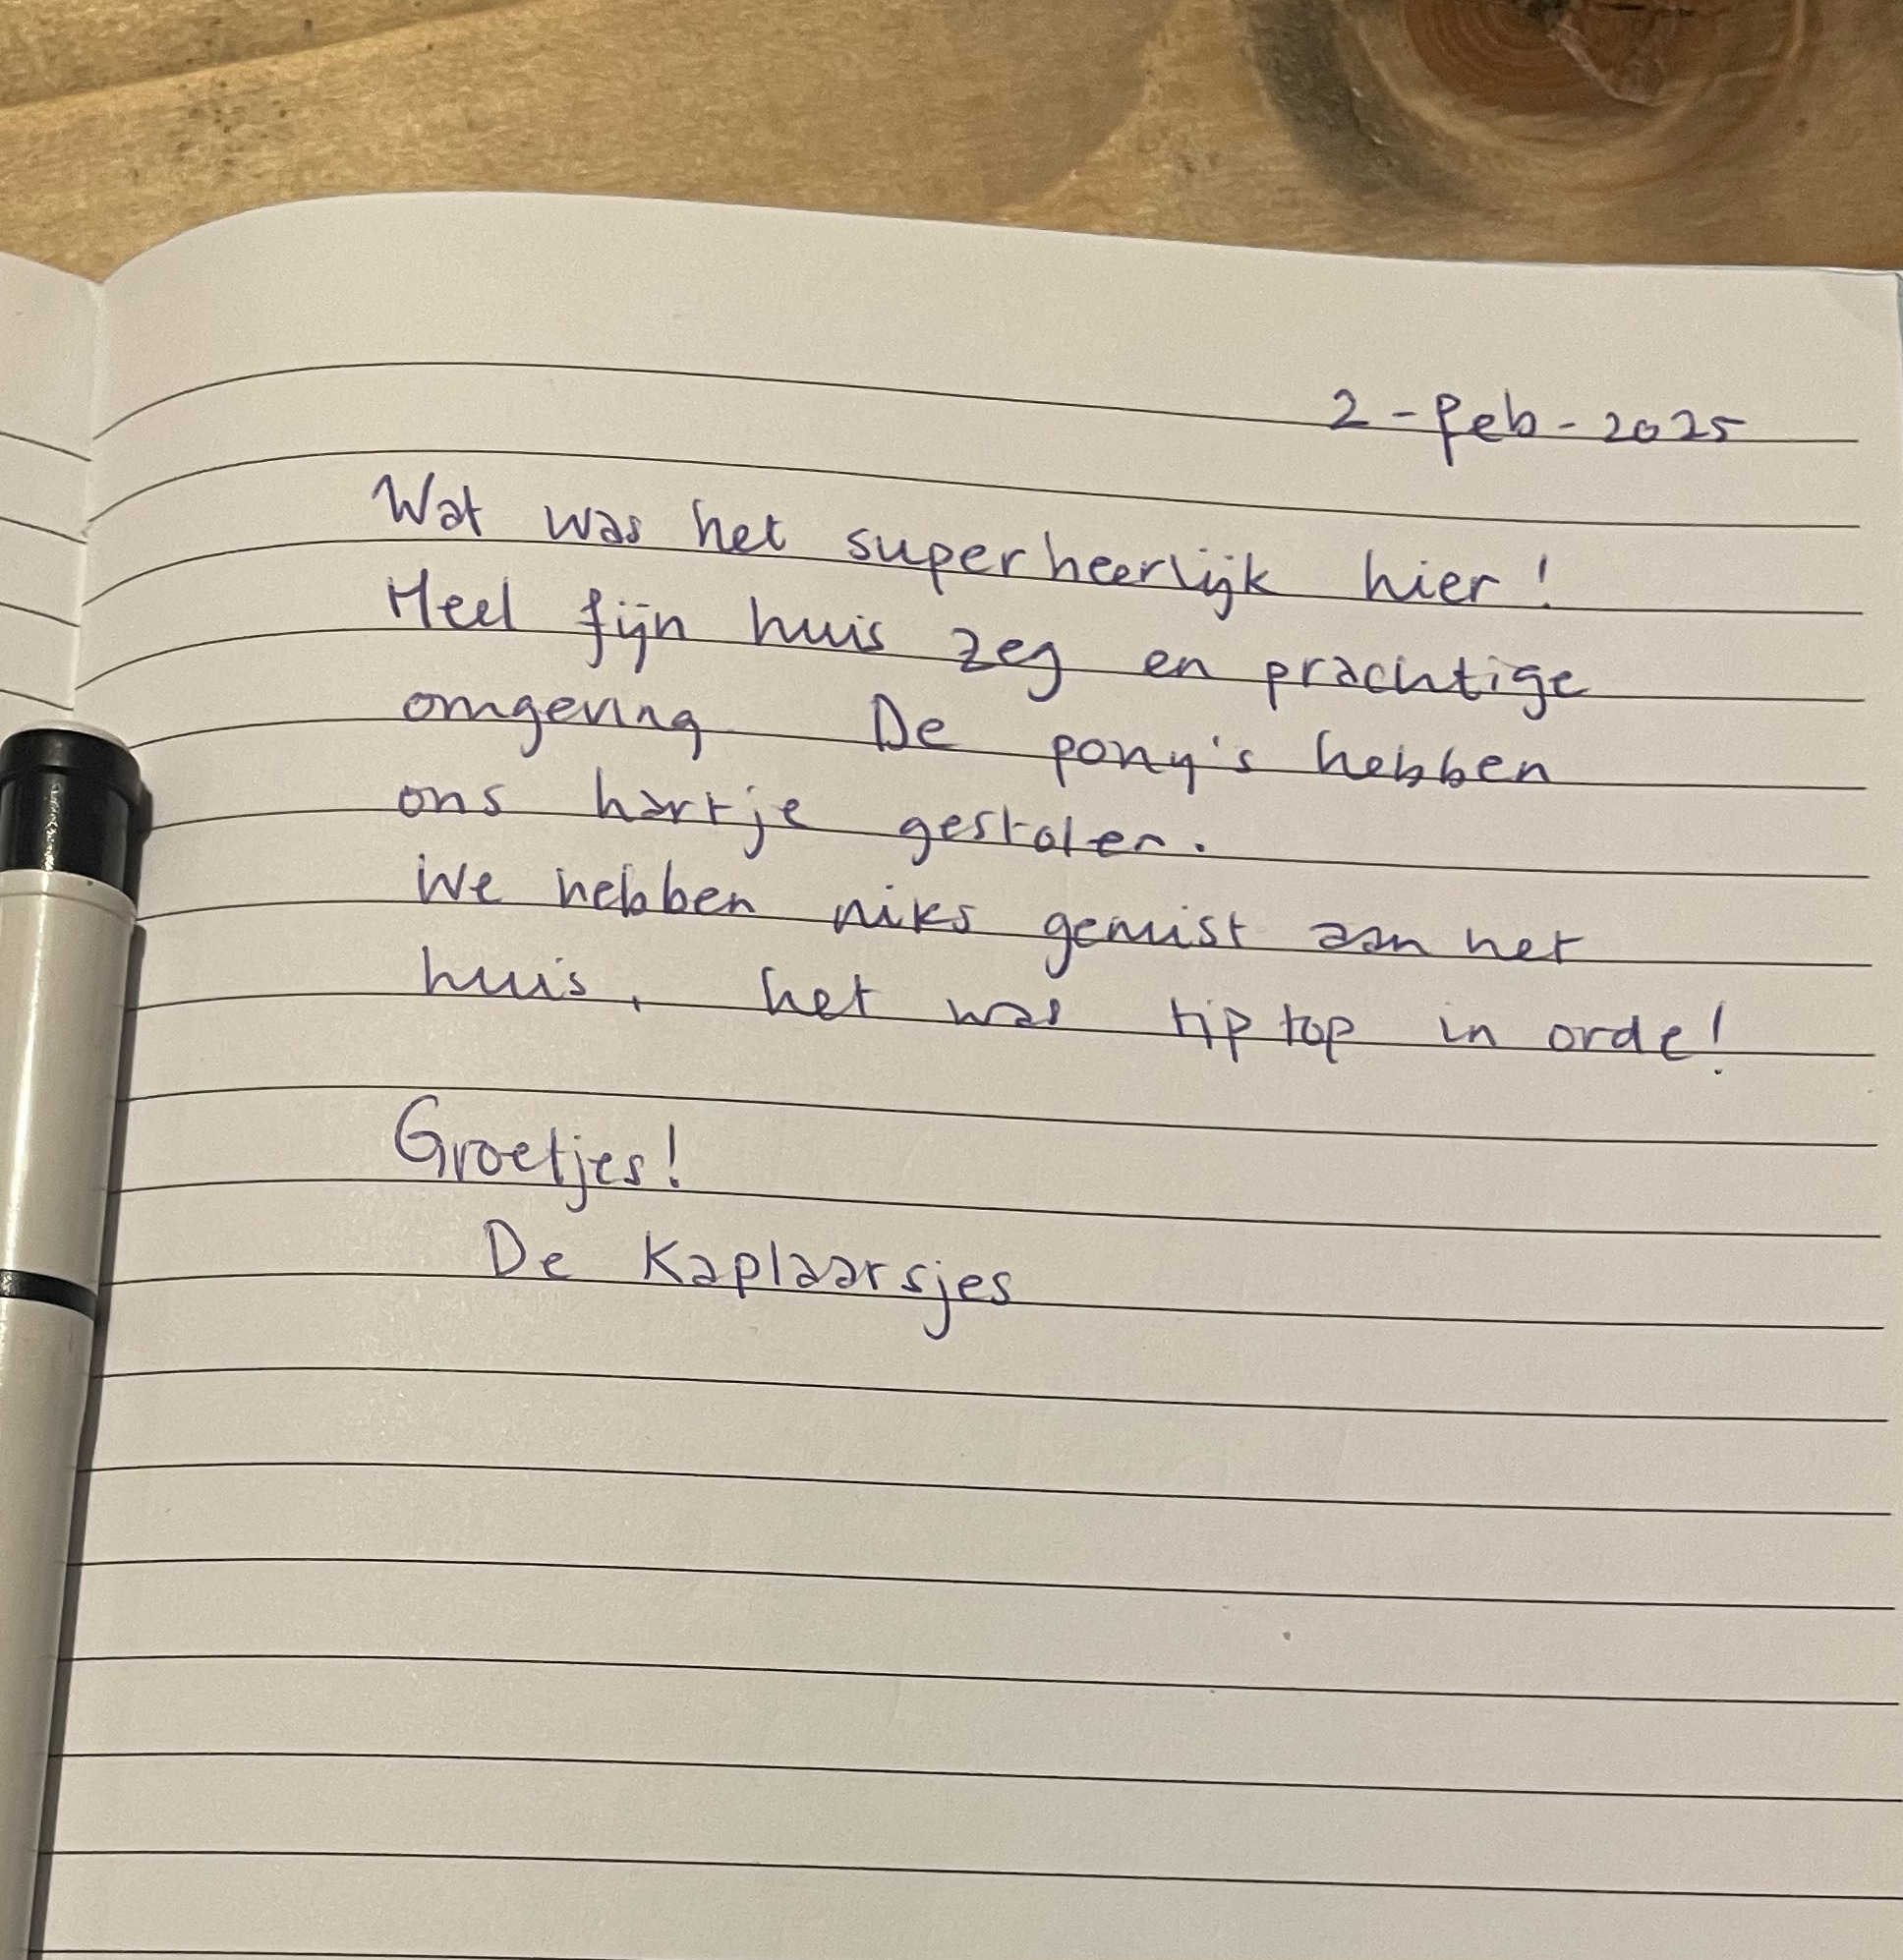 2-feb-2025
Wat was het superheerlijk hier!
Heel fijn huis zeg en prachtige
omgeving De pony's hebben
ons hartje gestolen.
We hebben niks gemist aan het
huis, het was tip top in orde!
Groetjes!
De Kaplaarsjes